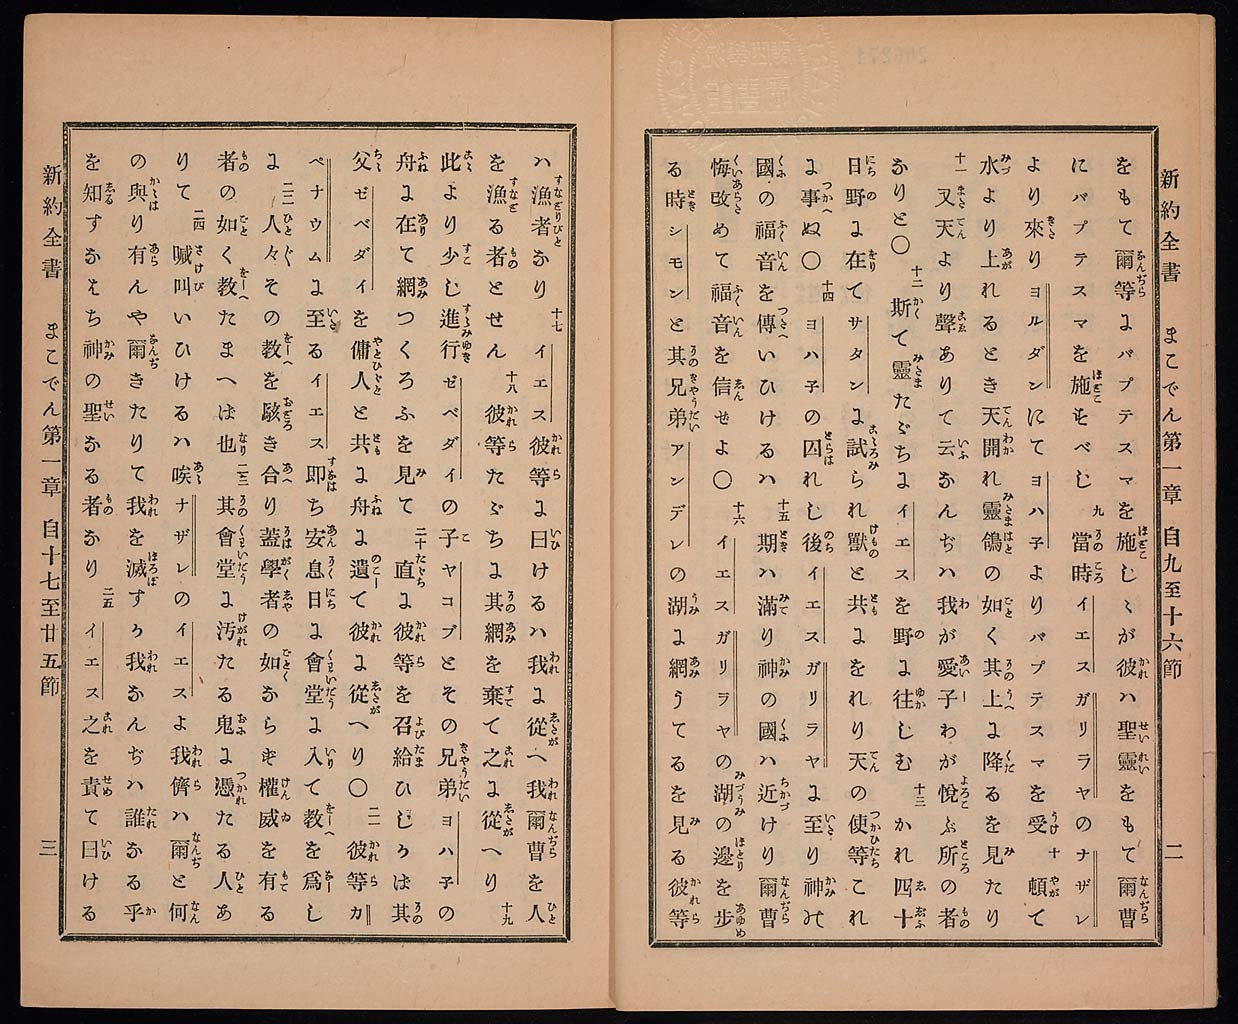 新約全書 まこでん第一章 自九至十六節 二
をもて爾等よバプテスマを施しゝが彼ハ聖靈をもて爾曹
にバプテスマを施すべし 九 當時イエスガリラヤのナザレ
より來りヨルダンにてヨハ子よりバプテスマを受 十 頓て
水より上れるとき天開れ靈鴿の如く其上に降るを見たり
十一 又天より聲ありて云なんぢハ我が愛子わが悅ぶ所の者
なりと〇 十二 斯て靈たゞちにイエスを野に往しむ 十三 かれ四十
日野に在てサタンに試られ獸と共にをれり天の使等これ
に事ぬ〇 十四 ヨハ子の囚れし後イエスガリラヤに至り神の
國の福音を傳いひけるハ 十五 期ハ滿り神の國ハ近けり爾曹
悔改めて福音を信せよ〇 十六 イエスガリラヤの湖の邊を步
る時シモンと其兄弟アンデレの湖に網うてるを見る彼等
ハ漁者なり 十七 イエス彼等に曰けるハ我に從へ我爾曹を人
を漁る者とせん 十八 彼等たゞちに其網を棄て之に從へり 十九
此より少し進行ゼベダイの子ヤコブとその兄弟ヨハ子の
舟に在て網つくろふを見て 二十 直に彼等を召給ひしかば其
父ゼベダイを傭人と共に舟に遺て彼に從へり〇 二一 彼等カ
ペナウムに至るイエス即ち安息日に會堂に入て教を爲し
に 二二 人々その教を駭き合り蓋學者の如からず權威を有る
者の如く教たまへば也 二三 其會堂に汚たる鬼に憑たる人あ
りて 二四 喊叫いひけるハ唉ナザレのイエスよ我儕ハ爾と何
の與り有んや爾きたりて我を滅すか我なんぢハ誰なる乎
を知すなはち神の聖なる者なり 二五 イエス之を責て曰ける
新約全書 まこでん第一章 自十七至廿五節 三